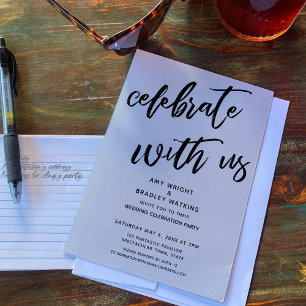 celebrate
with us
AMY WRIGHT
&
BRADLEY WATKINS
INVITE YOU TO THEIR
WEDDING CELEBRATION PARTY
SATURDAY MAY 6, 20XX AT 7PM
123 FANTASTIC PAVILION
SPECTACULAR TOWN, STATE
address
party